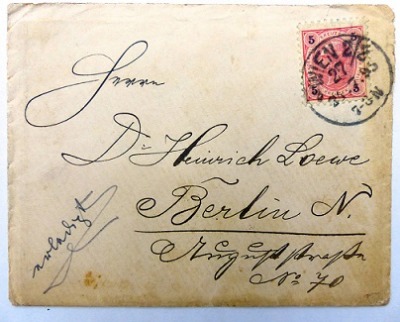 5
5 5
WIEN 2/
27
Herrn
Dr Heinrich Loewe
Berlin N.
Auguststraße
No 70
erledigt